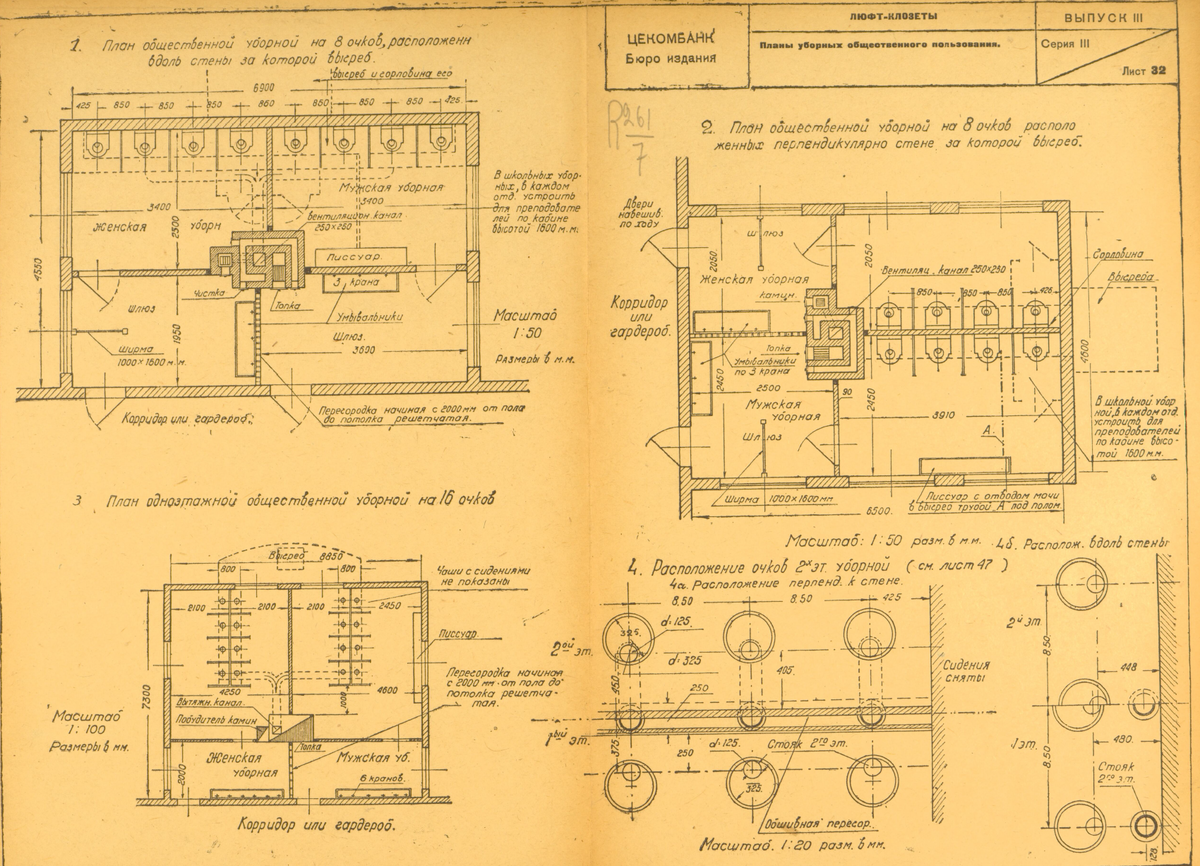 ЦЕКОМБАНК
Бюро издания
ЛЮФТ-КЛОЗЕТЫ
Планы уборных общественного пользования.
ВЫПУСК III
Серия III
Лист 32
R 261
7
1. План общественной уборной на 8 очков, расположенн
вдоль стены за которой выгреб.
выгреб и горловина его
6900
425
850
850
850
860
850
850
850
425
Мужская уборная
3400
3400
Женская
уборн
2500
4550
Вентиляцион. канал
250×250
Писсуар.
3 крана
Чистка
Топка
Умывальники
Шлюз
Шлюз.
Ширма
1000×1600 м.м.
1950
3690
В школьных убор-
ных, в каждом
отд. устроить
для преподавате
лей по кабине
высотой 1600 м.м.
Масштаб
1:50
размеры в м.м.
Корридор или гардероб.
Перегородка начиная с 2000мм от пола
до потолка решетчатая.
2. План общественной уборной на 8 очков располо
женных перпендикулярно стене за которой выгреб.
Двери
навешив.
по ходу
Шлюз
2050
2050
Женская уборная
камин.
Вентиляц. канал 250×250
Горловина
Выгреба
850
850
850
425
Корридор
или
гардероб.
Топка
Умывальники
по 3 крана
2450
2500
2450
90
3910
4600
Мужская
уборная
Шлюз
А
Ширма 1000×1600мм
Писсуар с отводом мочи
в выгреб трубой А под полом.
6500.
В школьной убор
ной, в каждом отд.
устроить для
преподователей
по кабине высо-
той 1600 м.м.
Масштаб: 1:50 разм. в м.м.
3 План одноэтажной общественной уборной на 16 очков
Выгреб
8850
800
800
Чаши с сидениями
не показаны
2100
2100
2100
2450
Писсуар
7300
4250
4600
1000
Вытяжн. канал.
Побудитель камин
Топка
Перегородка начиная
с 2000мм от пола до
потолка решетча-
тая.
Масштаб
1:100
Размеры в мм.
Женская
уборная
Мужская уб.
2000
6 кранов.
Корридор или гардероб.
4. Расположение очков 2х эт. уборной ( см. лист 47 )
4а. Расположение перпенд. к стене.
8.50
8.50
425
325.
d-125.
d-325
2ой
эт.
450
405
250
1ый эт.
375
250
d-125.
Стояк 2го эт.
325.
Сидения
сняты
Обшивная перегор.
Масштаб. 1:20 разм. в мм.
4б. Располож. вдоль стены
2й эт
8.50
448
1 эт.
480.
8.50
Стояк
2го эт.
128